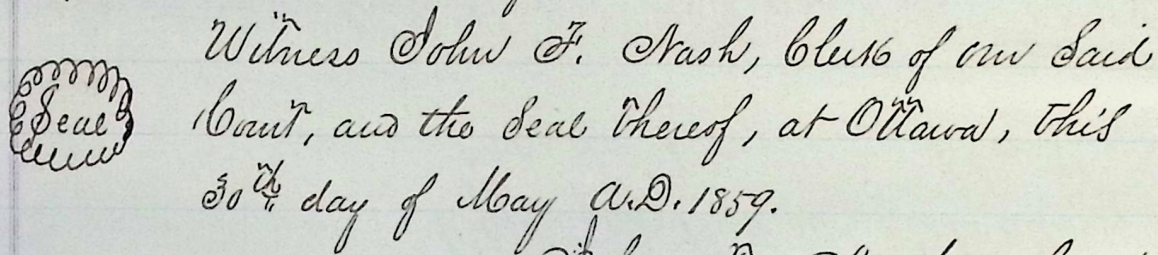 Witness John F. Nash, Clerk of our Said
Seal
Court, and the Seal thereof, at Ottawa, this
30th day of May A.D. 1859.